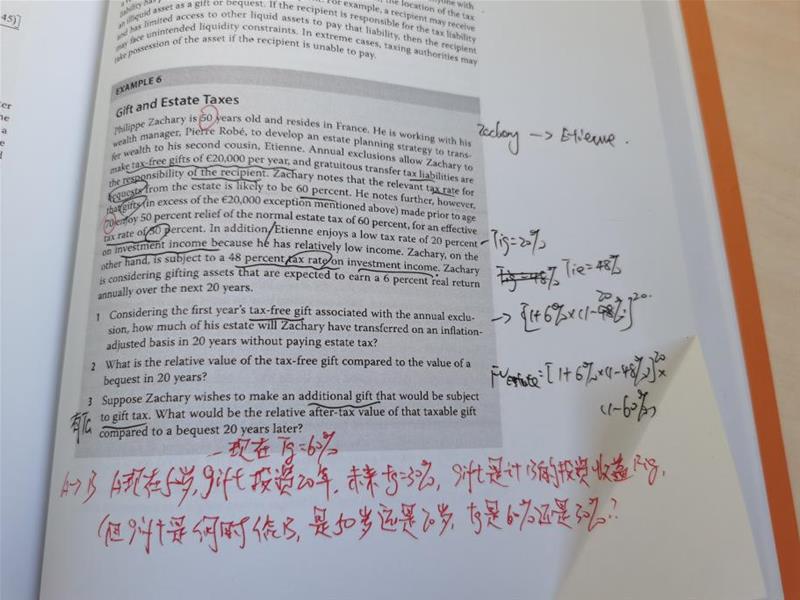 45)
liability has
the location of the tax
an illiquid asset as a gift or bequest. If the recipient is responsible for the tax liability
and has limited access to other liquid assets to pay that liability, then the recipient
may face unintended liquidity constraints. In extreme cases, taxing authorities may
take possession of the asset if the recipient is unable to pay.
EXAMPLE 6
Gift and Estate Taxes
Philippe Zachary is 50 years old and resides in France. He is working with his
wealth manager, Pierre Robé, to develop an estate planning strategy to trans-
fer wealth to his second cousin, Etienne. Annual exclusions allow Zachary to
make tax-free gifts of €20,000 per year, and gratuitous transfer tax liabilities are
the responsibility of the recipient. Zachary notes that the relevant tax rate for
bequests from the estate is likely to be 60 percent. He notes further, however,
that gifts (in excess of the €20,000 exception mentioned above) made prior to age
70 enjoy 50 percent relief of the normal estate tax of 60 percent, for an effective
tax rate of 30 percent. In addition, Etienne enjoys a low tax rate of 20 percent
on investment income because he has relatively low income. Zachary, on the
other hand, is subject to a 48 percent tax rate on investment income. Zachary
is considering gifting assets that are expected to earn a 6 percent real return
annually over the next 20 years.
1 Considering the first year's tax-free gift associated with the annual exclu-
sion, how much of his estate will Zachary have transferred on an inflation-
adjusted basis in 20 years without paying estate tax?
2 What is the relative value of the tax-free gift compared to the value of a
bequest in 20 years?
3 Suppose Zachary wishes to make an additional gift that would be subject
to gift tax. What would be the relative after-tax value of that taxable gift
compared to a bequest 20 years later?
Zachary → Etienne.
Tig=20%
Tie=48%
→ [1+6%×(1-20%)]^20
FV estate=[1+6%×(1-48%)]^20×
(1-60%)
有Tc
现在Tg=60%
A→B A现在50岁,gift投资20年,未来tg=30%,gift是计B的投资收益税tig,
(但gift是何时给B,是50岁还是70岁,tg是60%还是30%?